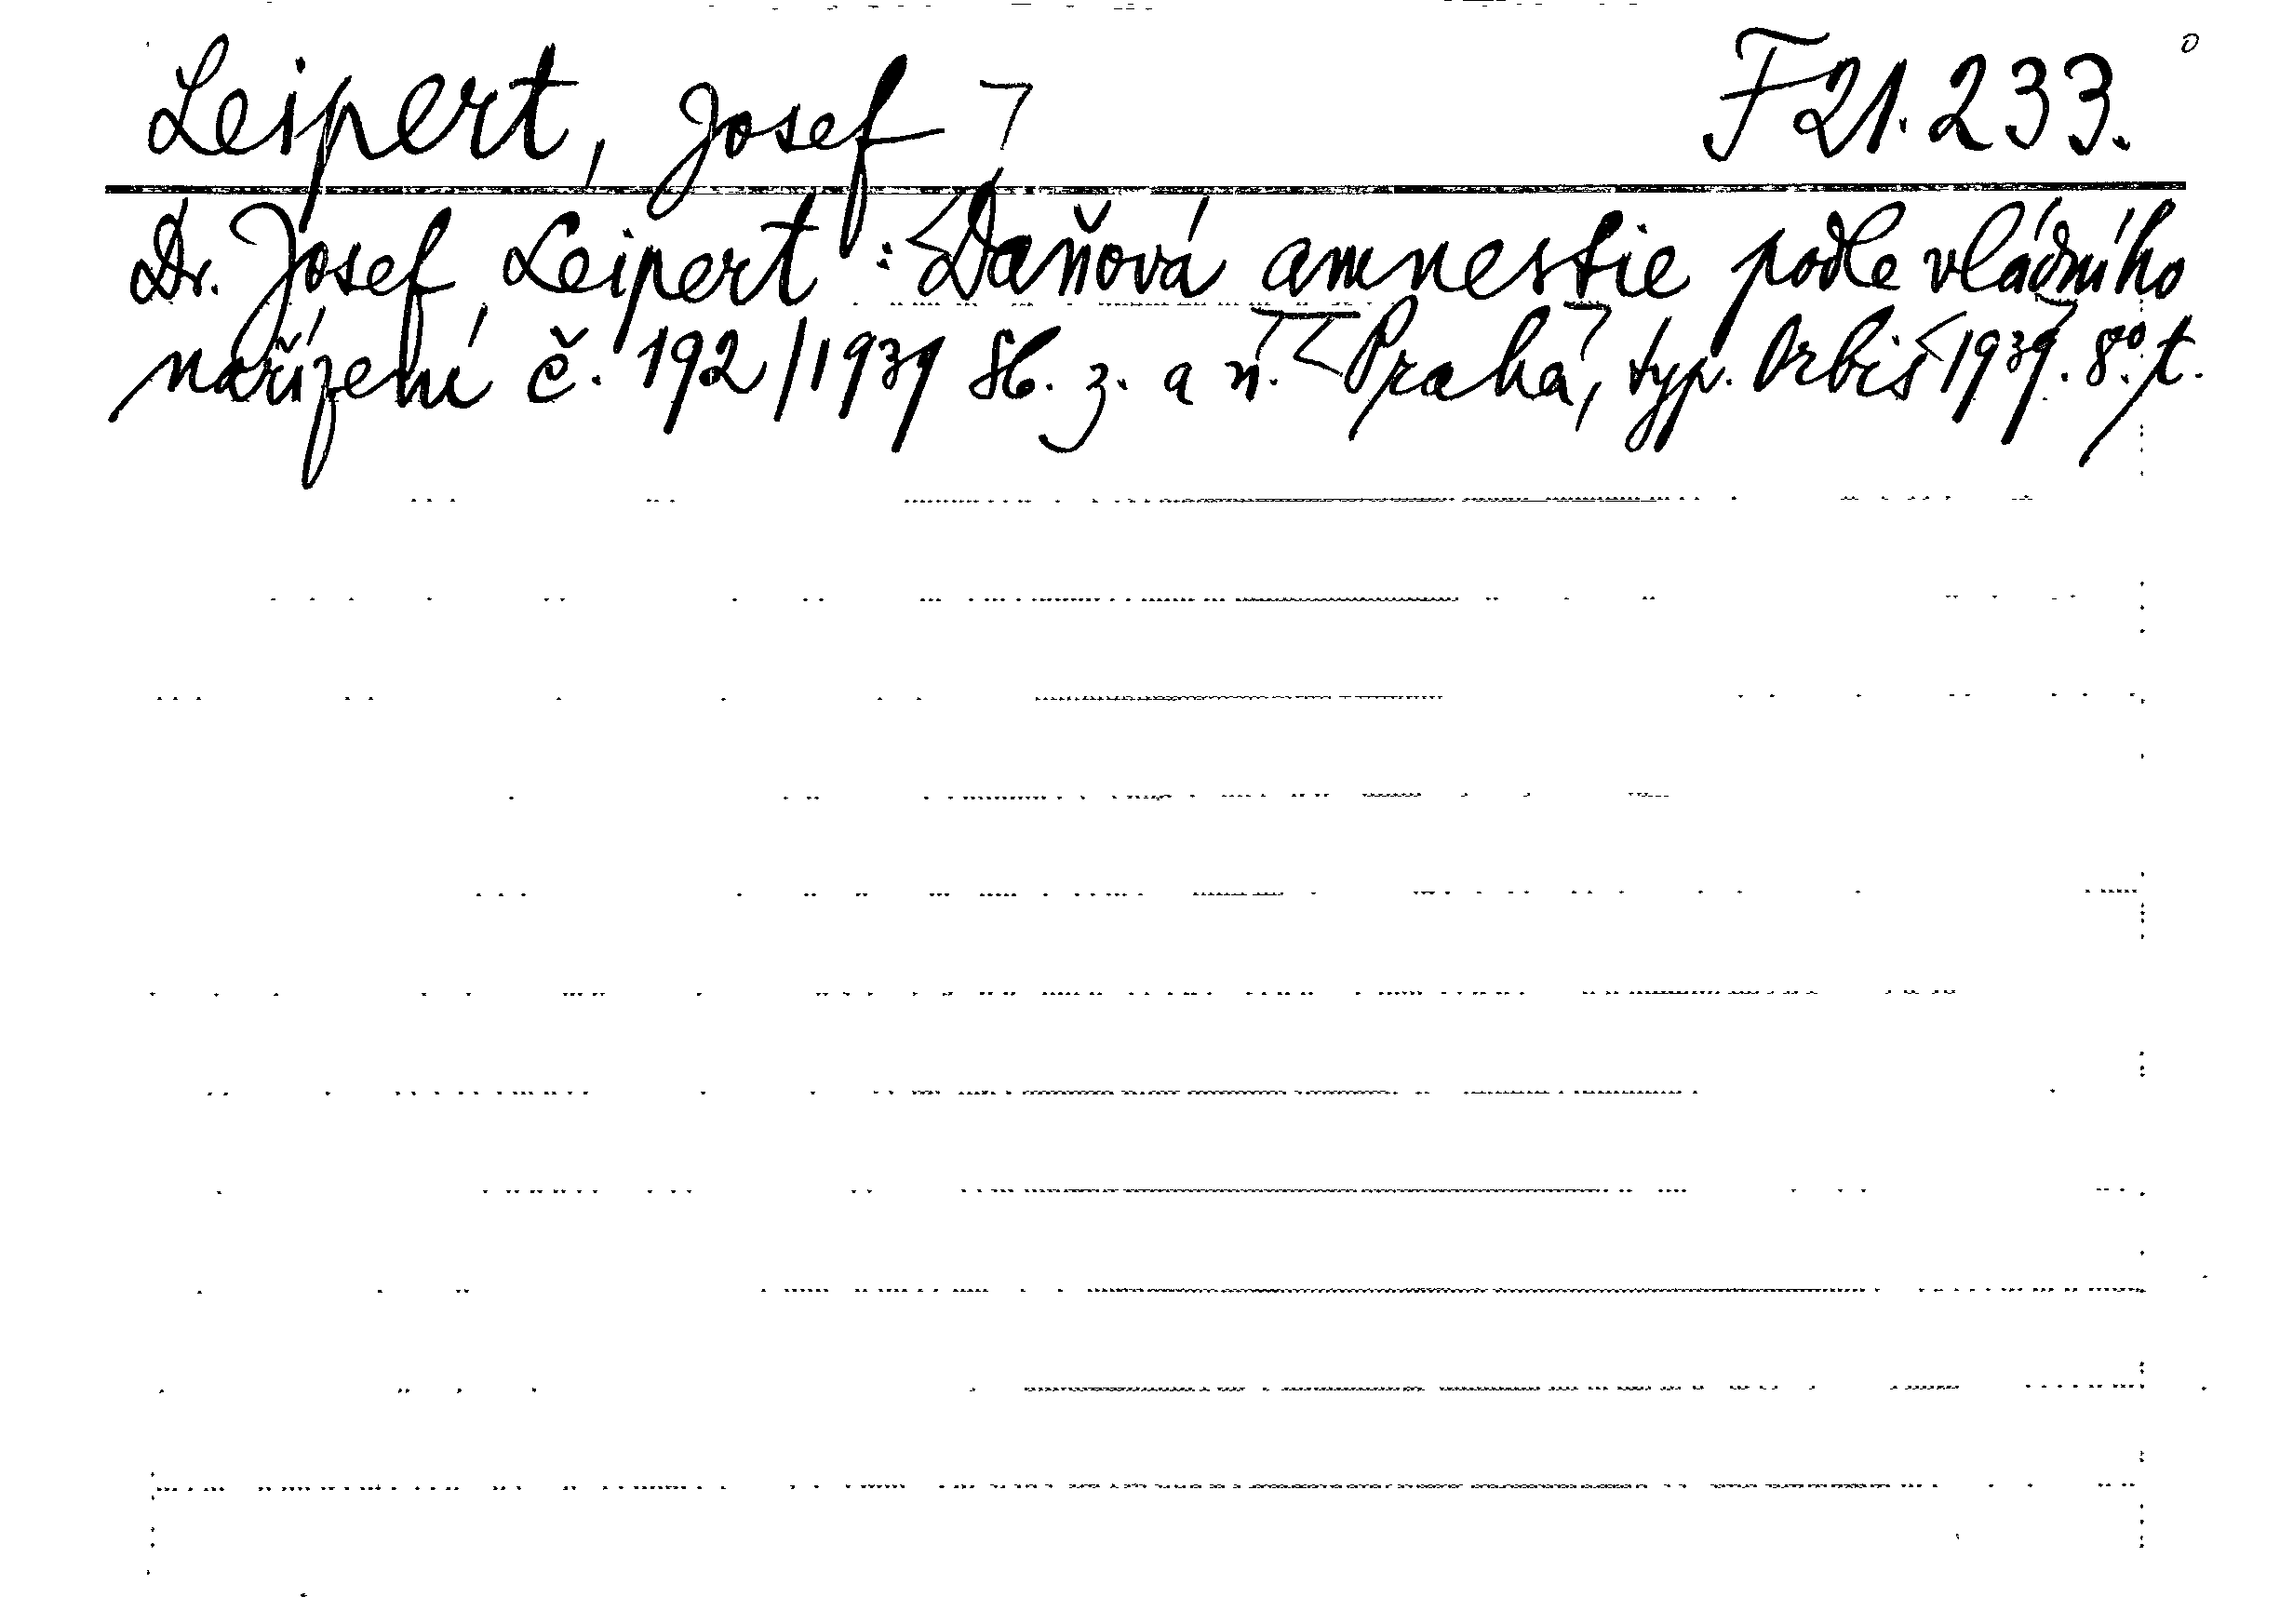 Leipert, Josef F 21.233.
Dr. Josef Leipert: Daňová amnestie podle vládního
nařízení č. 192/1939 Sb. z. a n. Praha, typ. Orbis 1939. 8°. t.